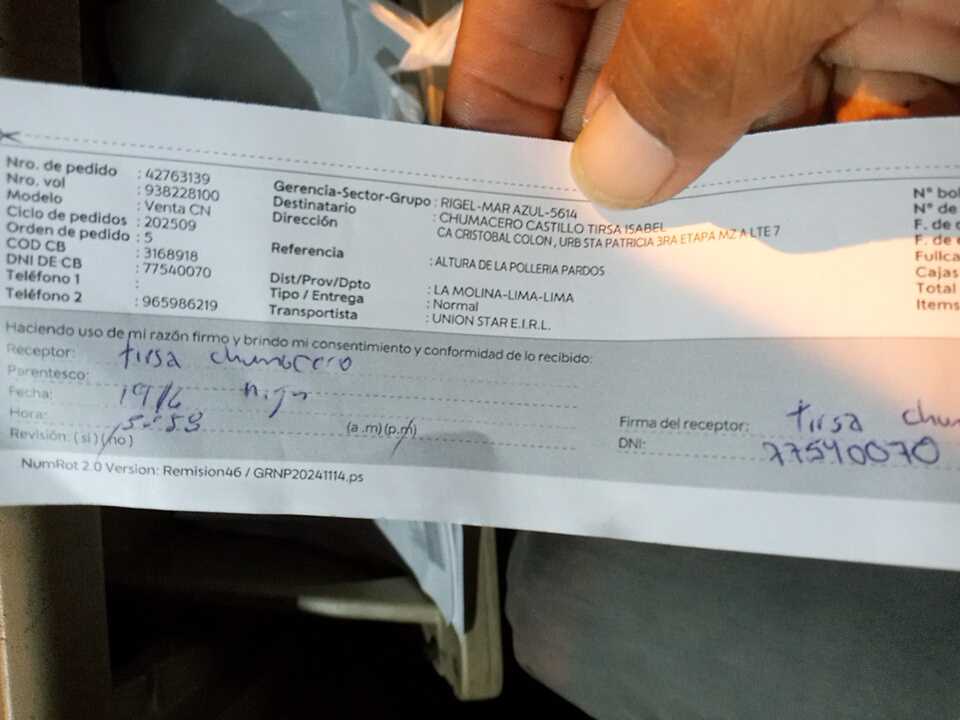 Nro. de pedido : 42763139
Nro. vol : 938228100
Modelo : Venta CN
Ciclo de pedidos : 202509
Orden de pedido : 5
COD CB : 3168918
DNI DE CB : 77540070
Teléfono 1 :
Teléfono 2 : 965986219
Gerencia-Sector-Grupo : RIGEL-MAR AZUL-5614
Destinatario : CHUMACERO CASTILLO TIRSA ISABEL
Dirección CA CRISTOBAL COLON , URB STA PATRICIA 3RA ETAPA MZ A LTE 7
Referencia : ALTURA DE LA POLLERIA PARDOS
Dist/Prov/Dpto : LA MOLINA-LIMA-LIMA
Tipo / Entrega : Normal
Transportista : UNION STAR E.I.R.L.
N° bol
N° de
F. de
F. de
Fullca
Cajas
Total
Items
Haciendo uso de mi razón firmo y brindo mi consentimiento y conformidad de lo recibido:
Receptor: tirsa chumacero
Parentesco:
Fecha: 19/6
Hora: 5:59 (a .m)(p.m)
Revisión: ( si ) (no )
Firma del receptor: tirsa chum
DNI: 77540070
NumRot 2.0 Version: Remision46 / GRNP20241114.ps